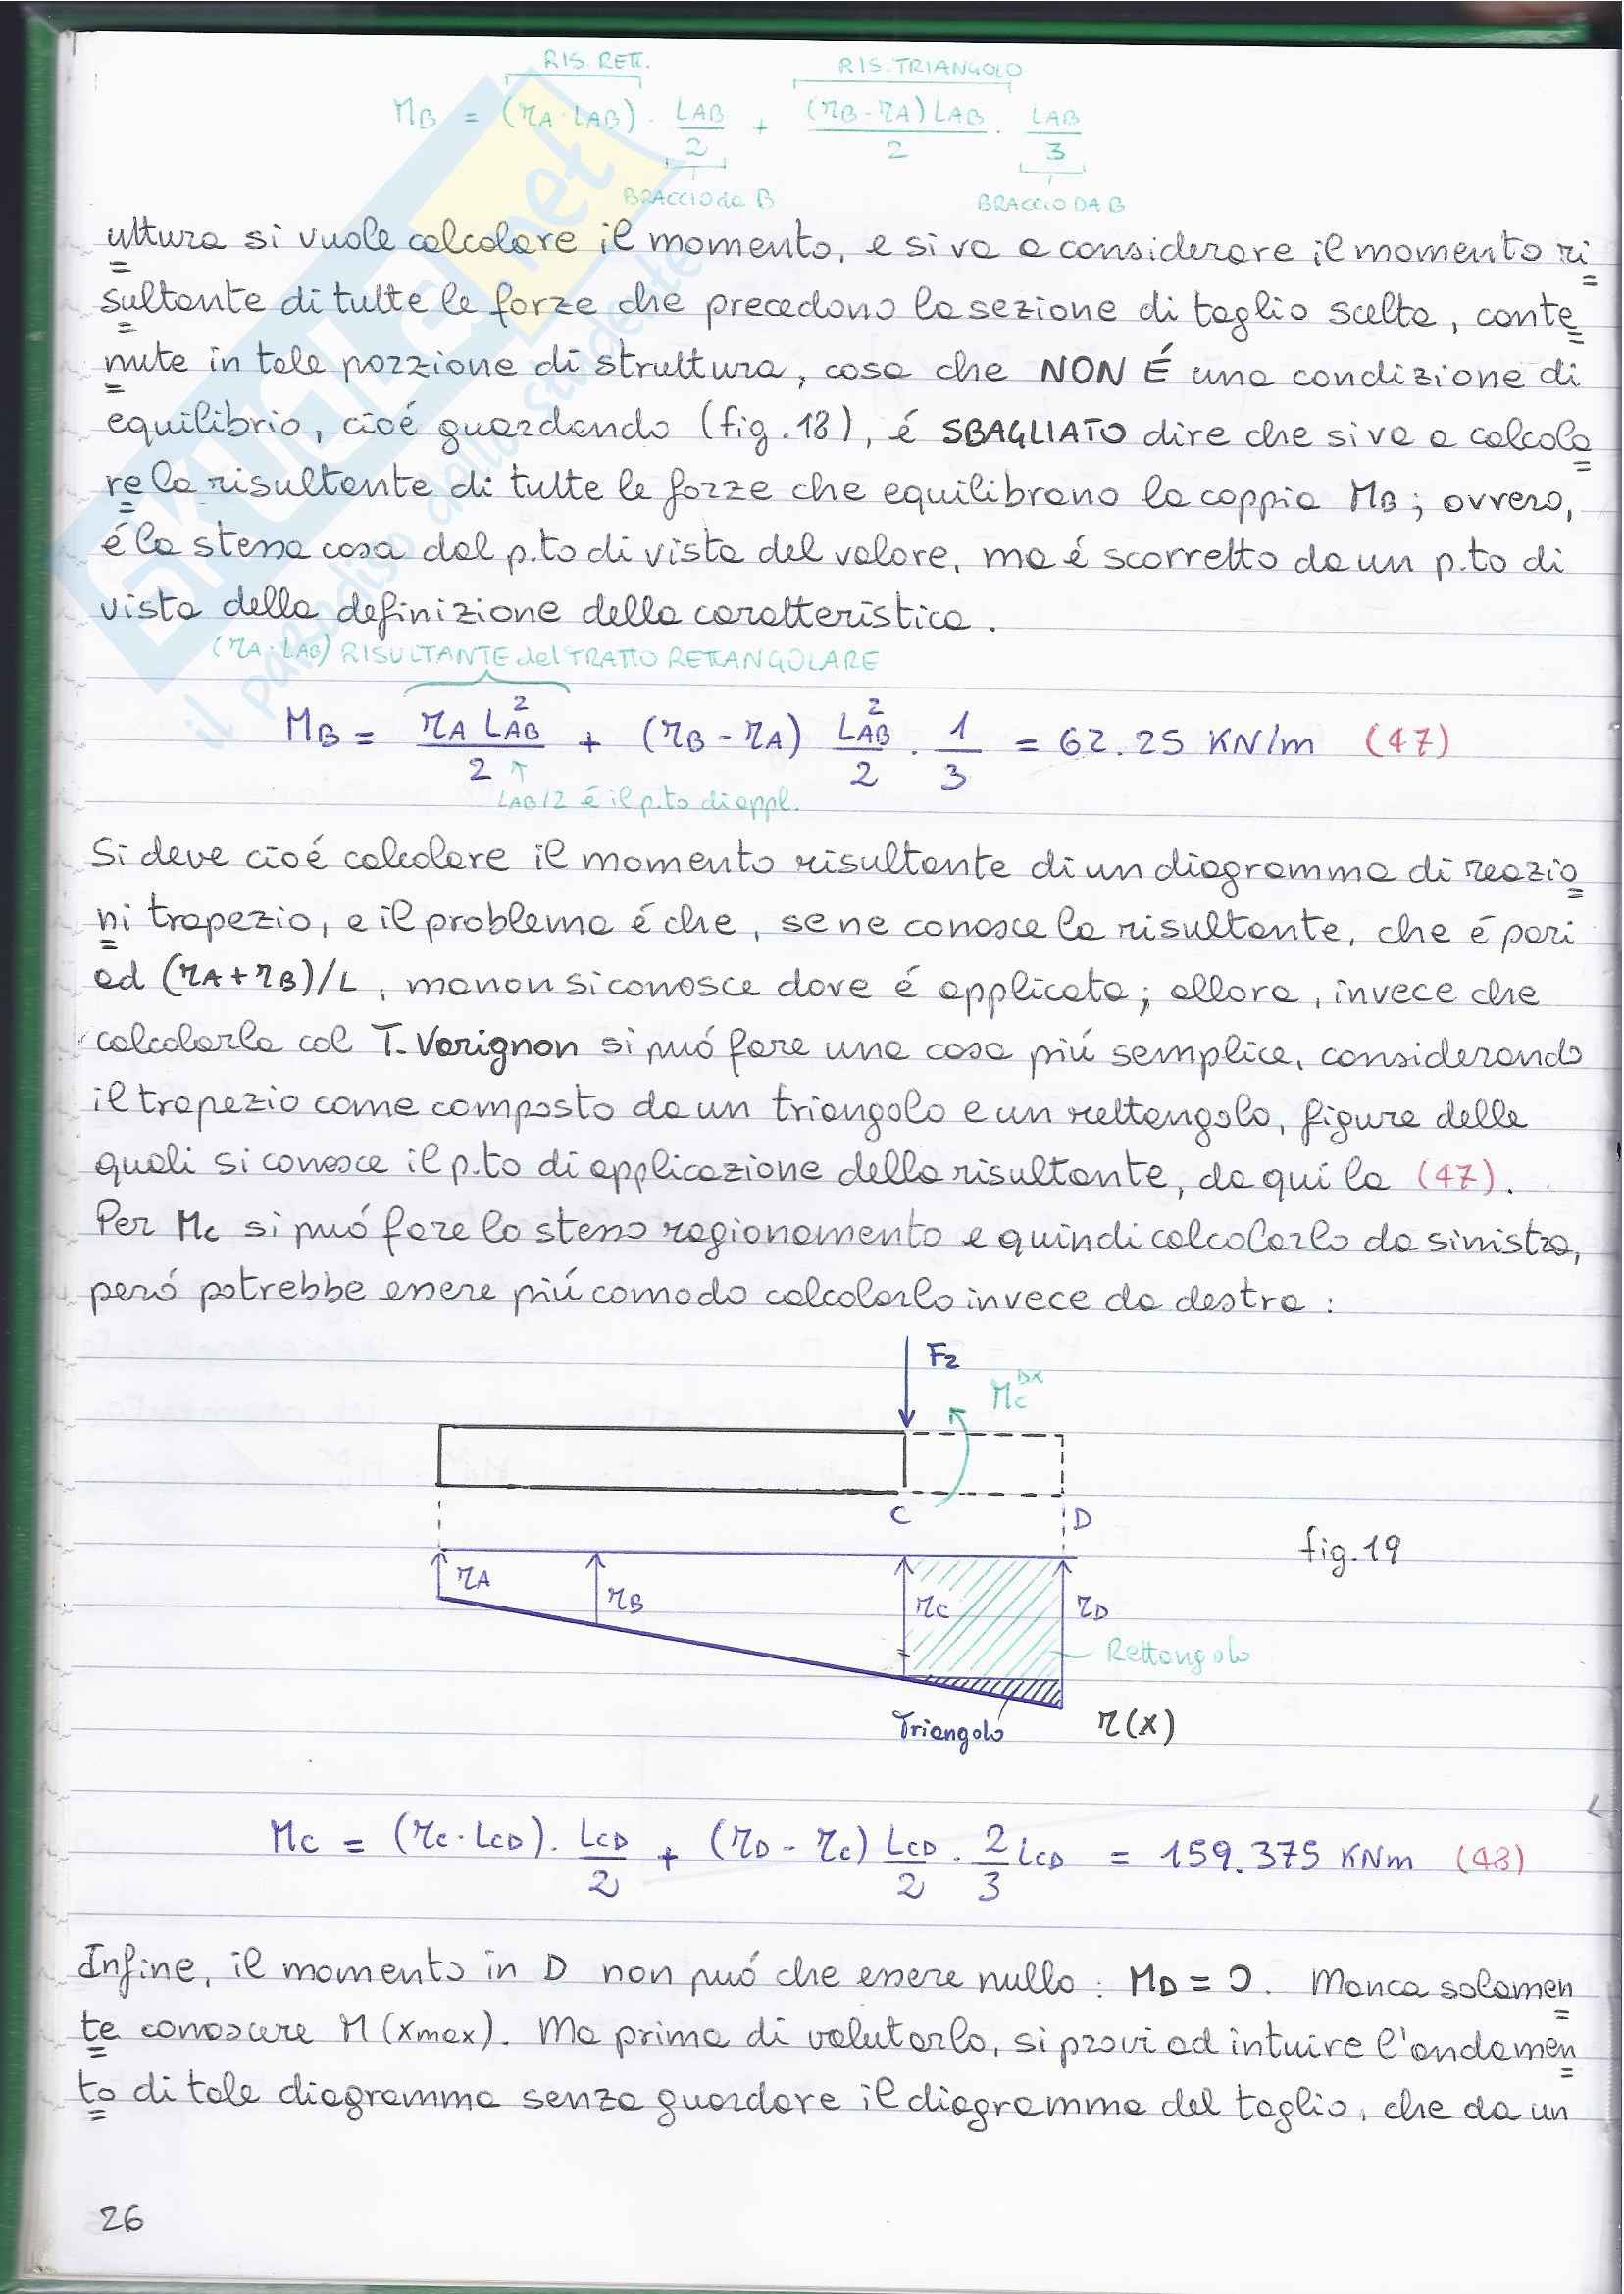 RIS. RETT. RIS. TRIANGOLO
MB = (rA · LAB) · LAB/2 + (rB - rA) LAB/2 · LAB/3
BRACCIO da B BRACCIO DA B
uttura si vuole calcolare il momento, e si va a considerare il momento ri
sultante di tutte le forze che precedono la sezione di taglio scelta, conte
nute in tale porzione di struttura, cosa che NON É una condizione di
equilibrio, cioé guardando (fig. 18), é SBAGLIATO dire che si va a calcola
re la risultante di tutte le forze che equilibrano la coppia MB ; ovvero,
é la stessa cosa dal p.to di vista del valore, ma é scorretto da un p.to di
vista della definizione della caratteristica.
(rA · LAB) RISULTANTE del TRATTO RETTANGOLARE
MB = rA LAB²/2 + (rB - rA) LAB²/2 · 1/3 = 62.25 KN/m (47)
LAB/2 é il p.to di appl.
Si deve cioé calcolare il momento risultante di un diagramma di reazio
ni trapezio, e il problema é che, se ne conosce la risultante, che é pari
ad (rA + rB)/L, ma non si conosce dove é applicata ; allora, invece che
calcolarla col T. Varignon si puó fare una cosa piú semplice, considerando
il trapezio come composto da un triangolo e un rettangolo, figure delle
quali si conosce il p.to di applicazione della risultante, da quí la (47).
Per Mc si puó fare lo stesso ragionamento e quindi calcolarlo da sinistra,
peró potrebbe essere piú comodo calcolarlo invece da destra :
F2
Mc DX
C D
fig. 19
rA rB rC rD
Rettangolo
Triangolo r(x)
Mc = (rc · LCD) · LCD/2 + (rD - rc) LCD/2 · 2/3 LCD = 159.375 KNm (48)
Infine, il momento in D non puó che essere nullo : MD = 0. Manca solamen
te conoscere M (xmax). Ma prima di valutarlo, si provi ad intuire l'andamen
to di tale diagramma senza guardare il diagramma del taglio, che da un
26
SKUOLA.net
il paradiso dello studente